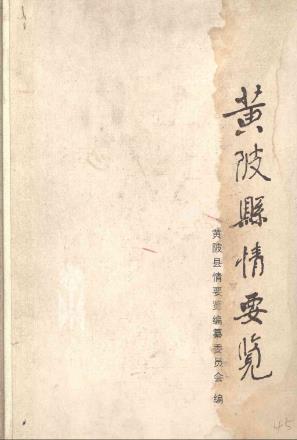 黄陂縣情要览
黄陂县情要览编纂委员会 编
45